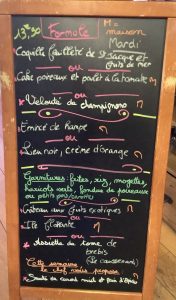 13€50 Formule M = maison
Mardi
Coquille feuilletée de St Jacque et
fruits de mer
ou
Cake poireaux et poulet à la tomate
ou
Velouté de champignons
Emincé de
ou
Lieu noir, crème d'orange
Garnitures: pates, riz, mogettes,
haricots verts, fondue de poireaux
ou petits pois/carottes
aux fruits exotiques
ou
Ile flottante
ou
Assiette de tome de
brebis
Cette semaine
le chef vous propose